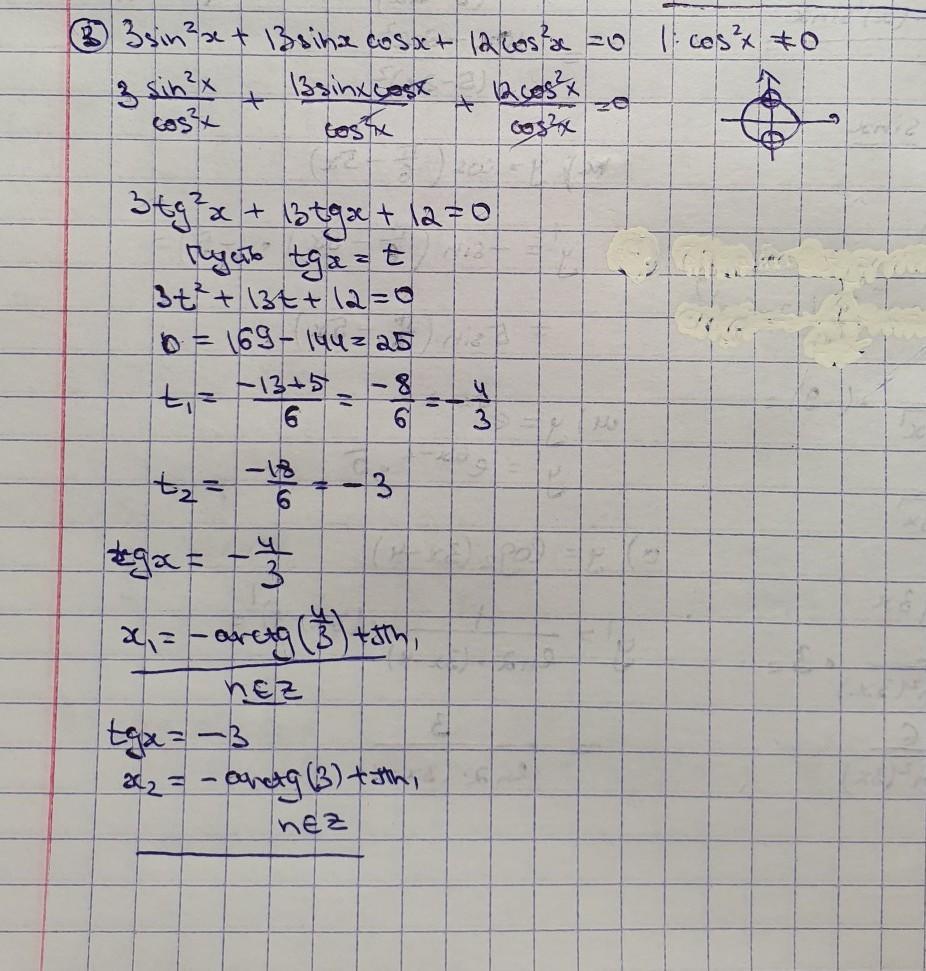 ③ 3sin²x + 13sinx cosx + 12cos²x = 0 |: cos²x ≠ 0
3 sin²x/cos²x + 13sinxcosx/cos²x + 12cos²x/cos²x = 0
3tg²x + 13tgx + 12 = 0
Пусть tgx = t
3t² + 13t + 12 = 0
D = 169 - 144 = 25
t₁ = -13+5/6 = -8/6 = -4/3
t₂ = -18/6 = -3
tgx = -4/3
x₁ = -arctg(4/3) + πn,
n∈Z
tgx = -3
x₂ = -arctg(3) + πn,
n∈Z